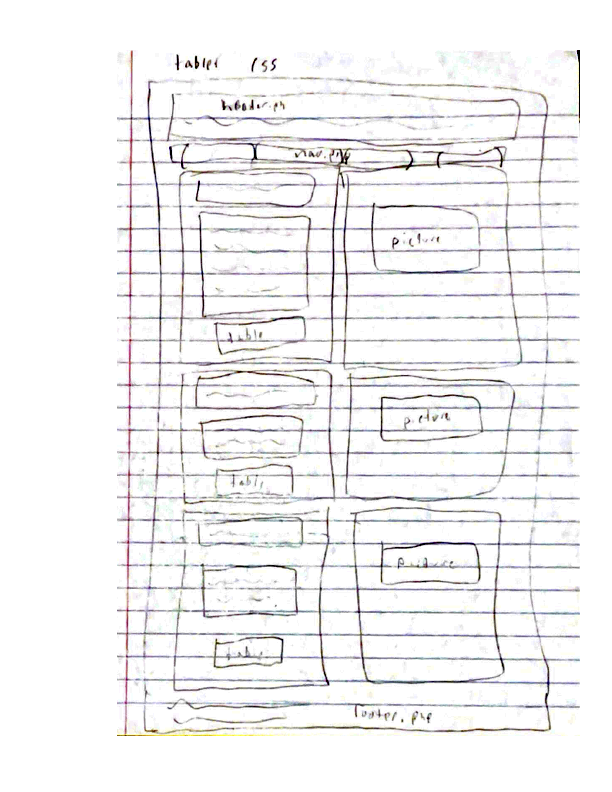 tablet css
header.ph
nav.png
picture
table
picture
table
picture
table
footer.php